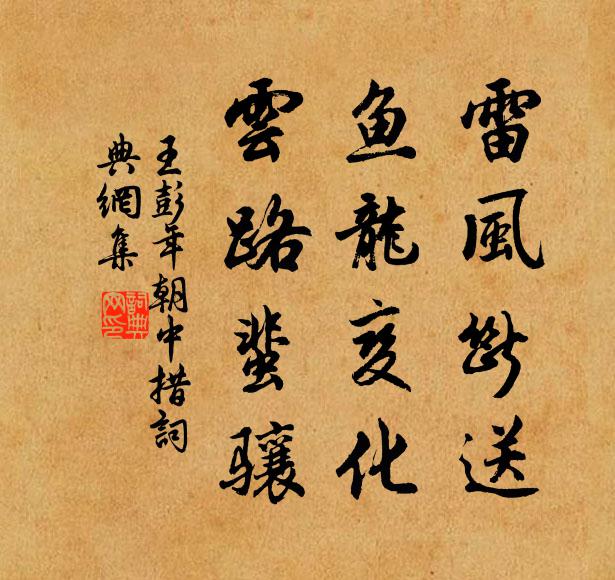 雷風断送
鱼龍变化
雲路蜚骧
王彭年朝中措詞
典網集
詞典网印